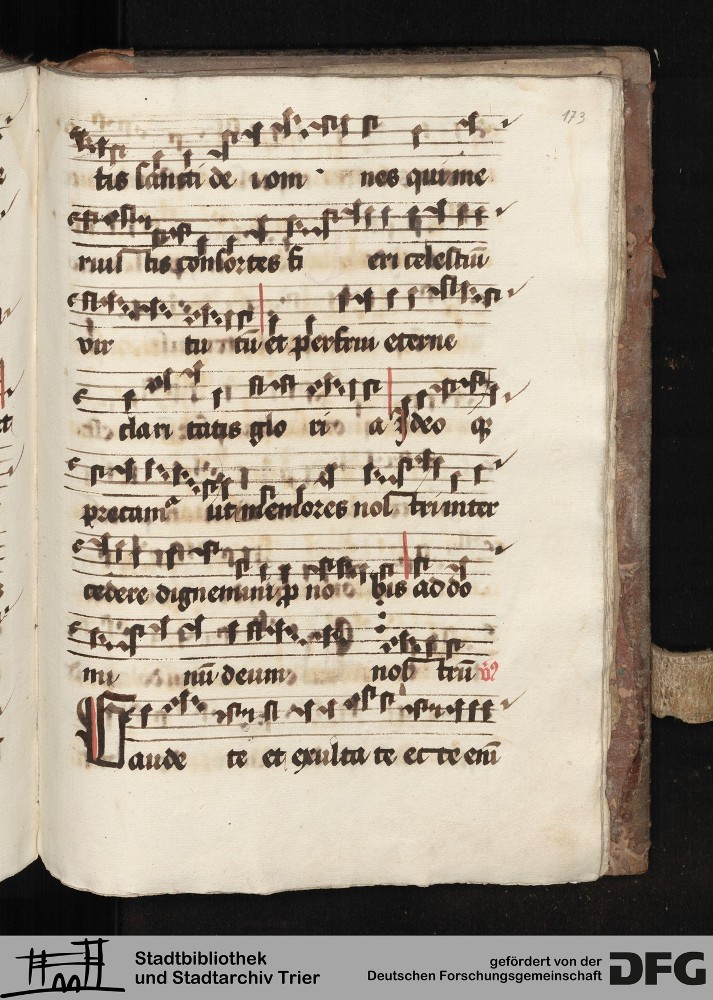 173
tis sancti dei om nes qui me
ruis tis consortes fi eri celestiū
vir tu tū et perfrui eterne
clari tatis glo ri a Ideo qƺ
precamᷣ ut memores nos tri inter
cedere dignemini ꝑ no bis ad do
mi nū deum nos trū v̄
Gaude te et exulta te ec ce eni
Stadtbibliothek
und Stadtarchiv Trier
gefördert von der
Deutschen Forschungsgemeinschaft
DFG